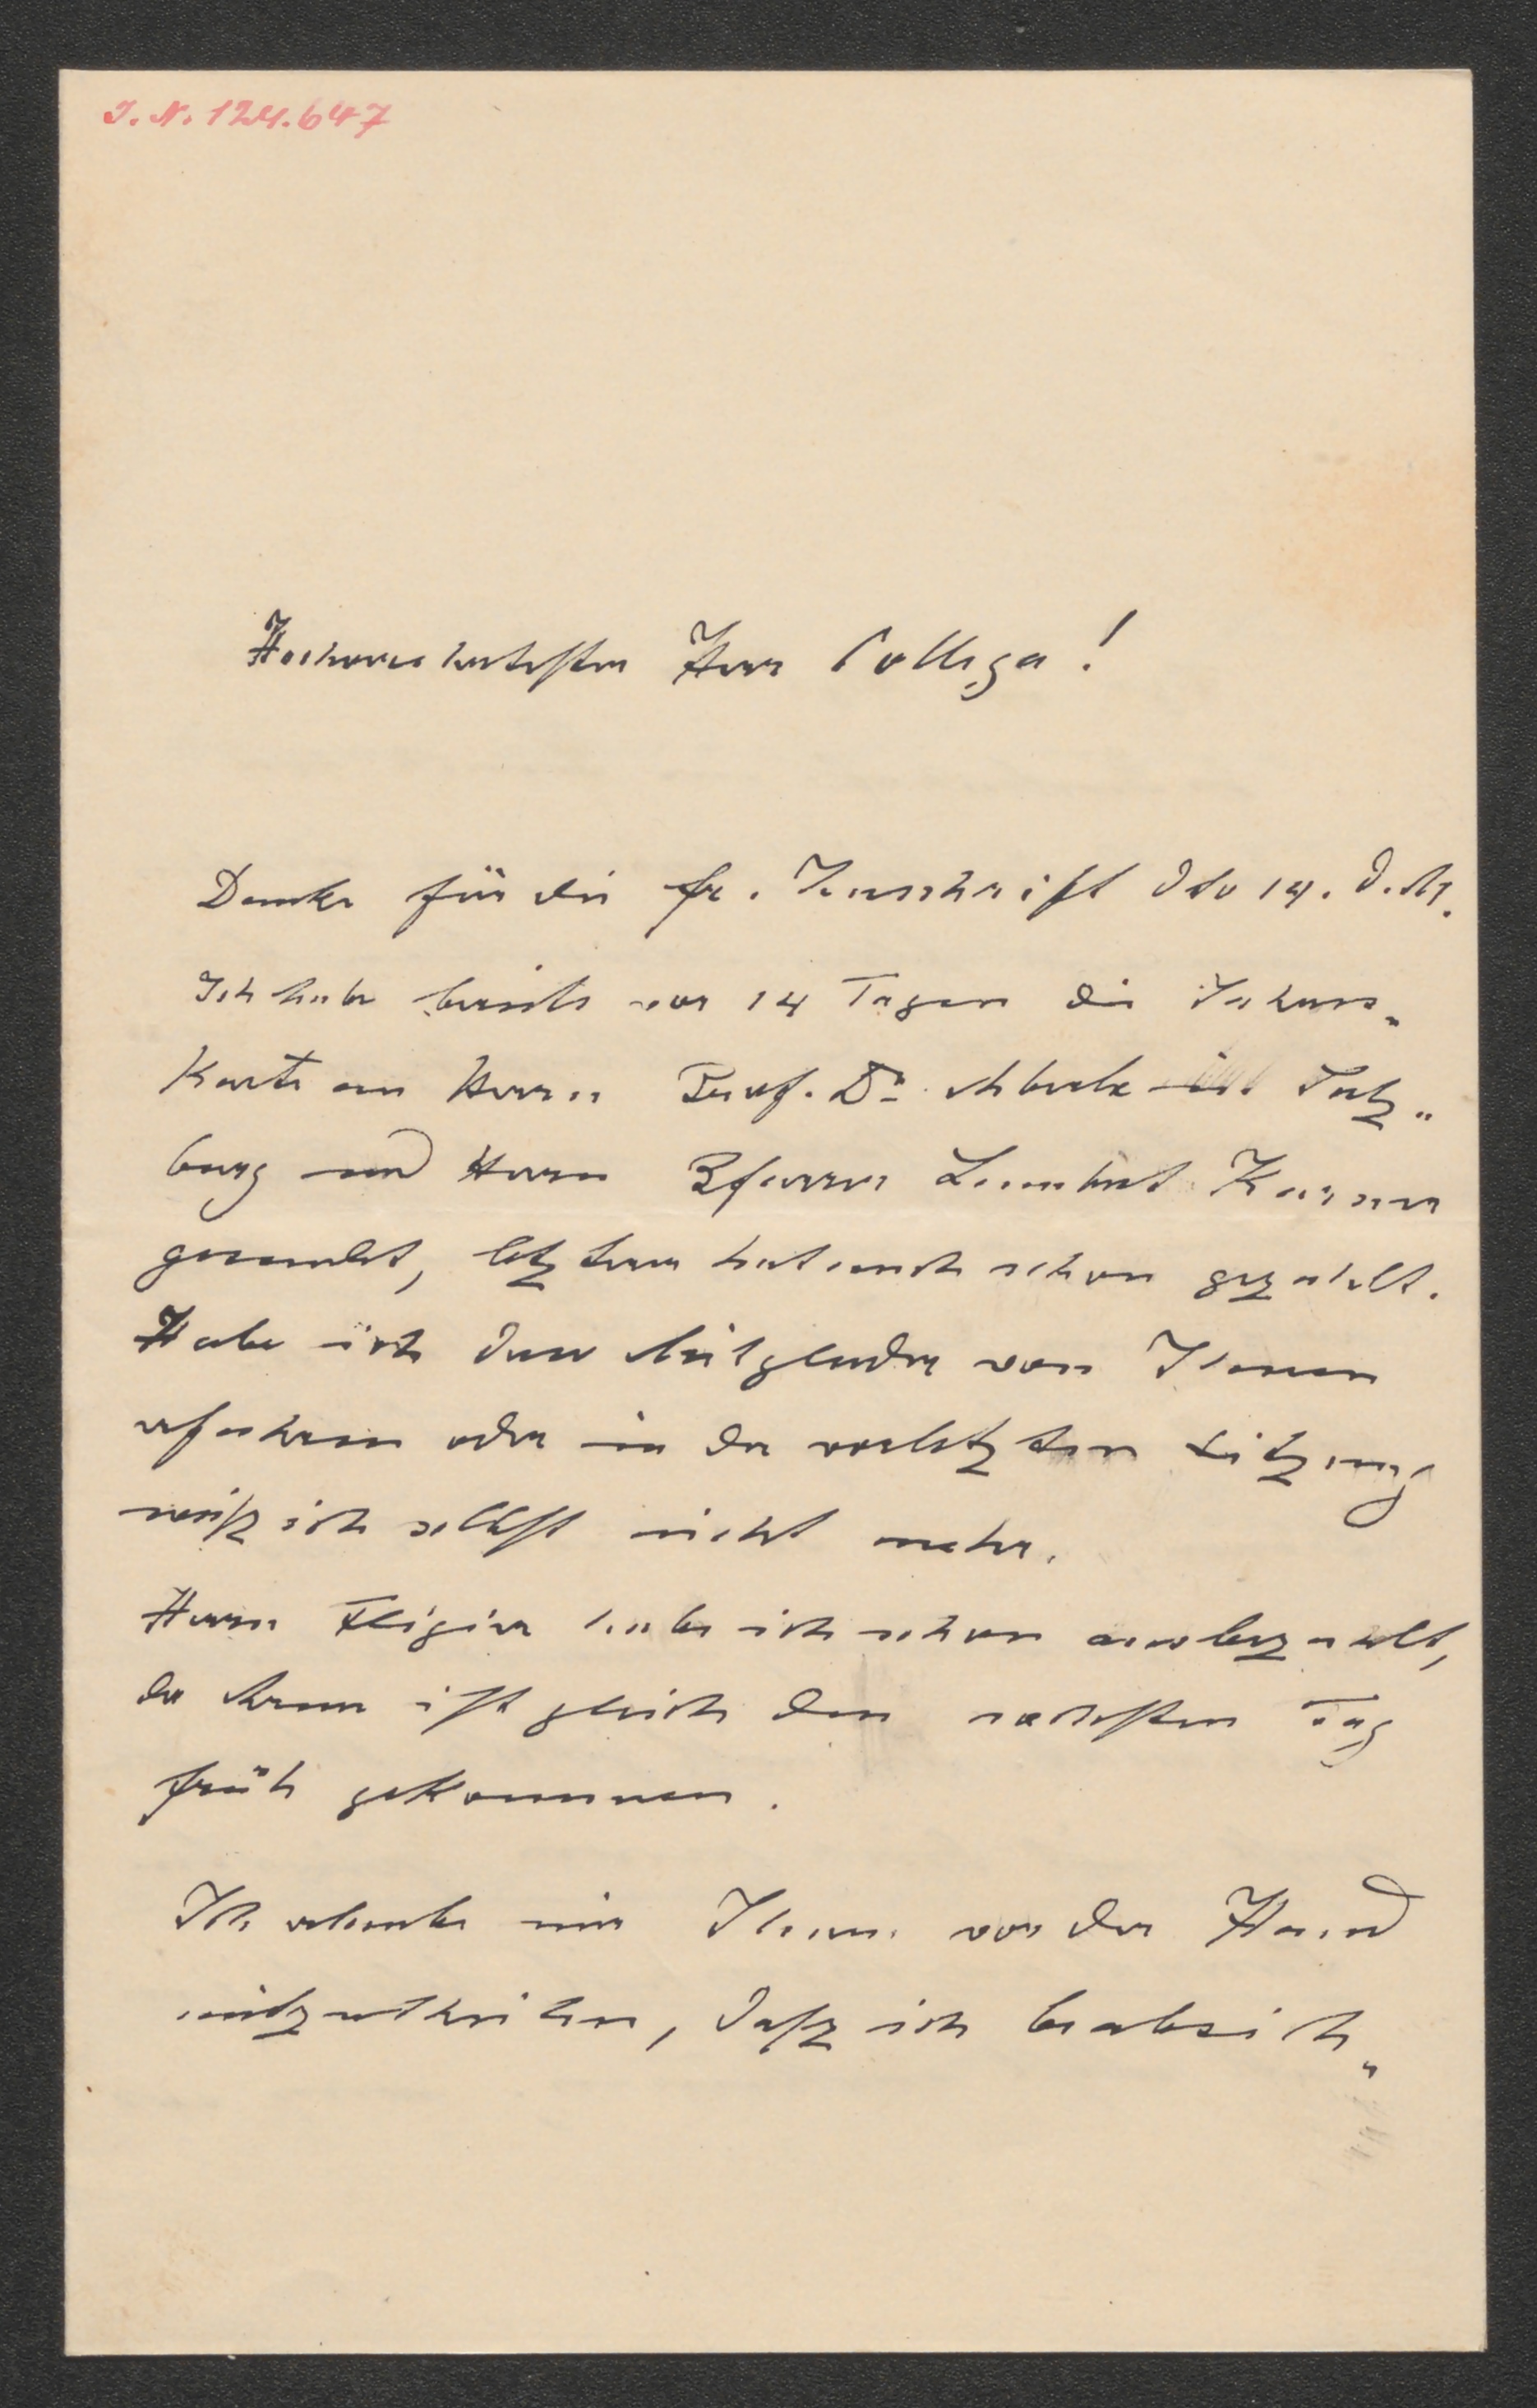 I. N. 124.647
Hochverehrtester Herr Collega!
Danke für die fr. Zuschrift dto 14. d. M.
Ich habe bereits vor 14 Tagen die Jahres„
Karte an Herrn Prof. Dr. in Salz„
burg und Herrn Pfarrer Lambert
gesendet, letzterer hat auch schon gezahlt.
Habe ich diese Mitglieder von Ihnen
erfahren oder in der vorletzten Sitzung
weiß ich selbst nicht mehr.
Herrn Fligier habe ich schon ausbezahlt,
der ist gleich den nächsten Tag
früh gekommen.
Ich erlaube mir Ihnen vor der Hand
mitzutheilen, daß ich beabsich„